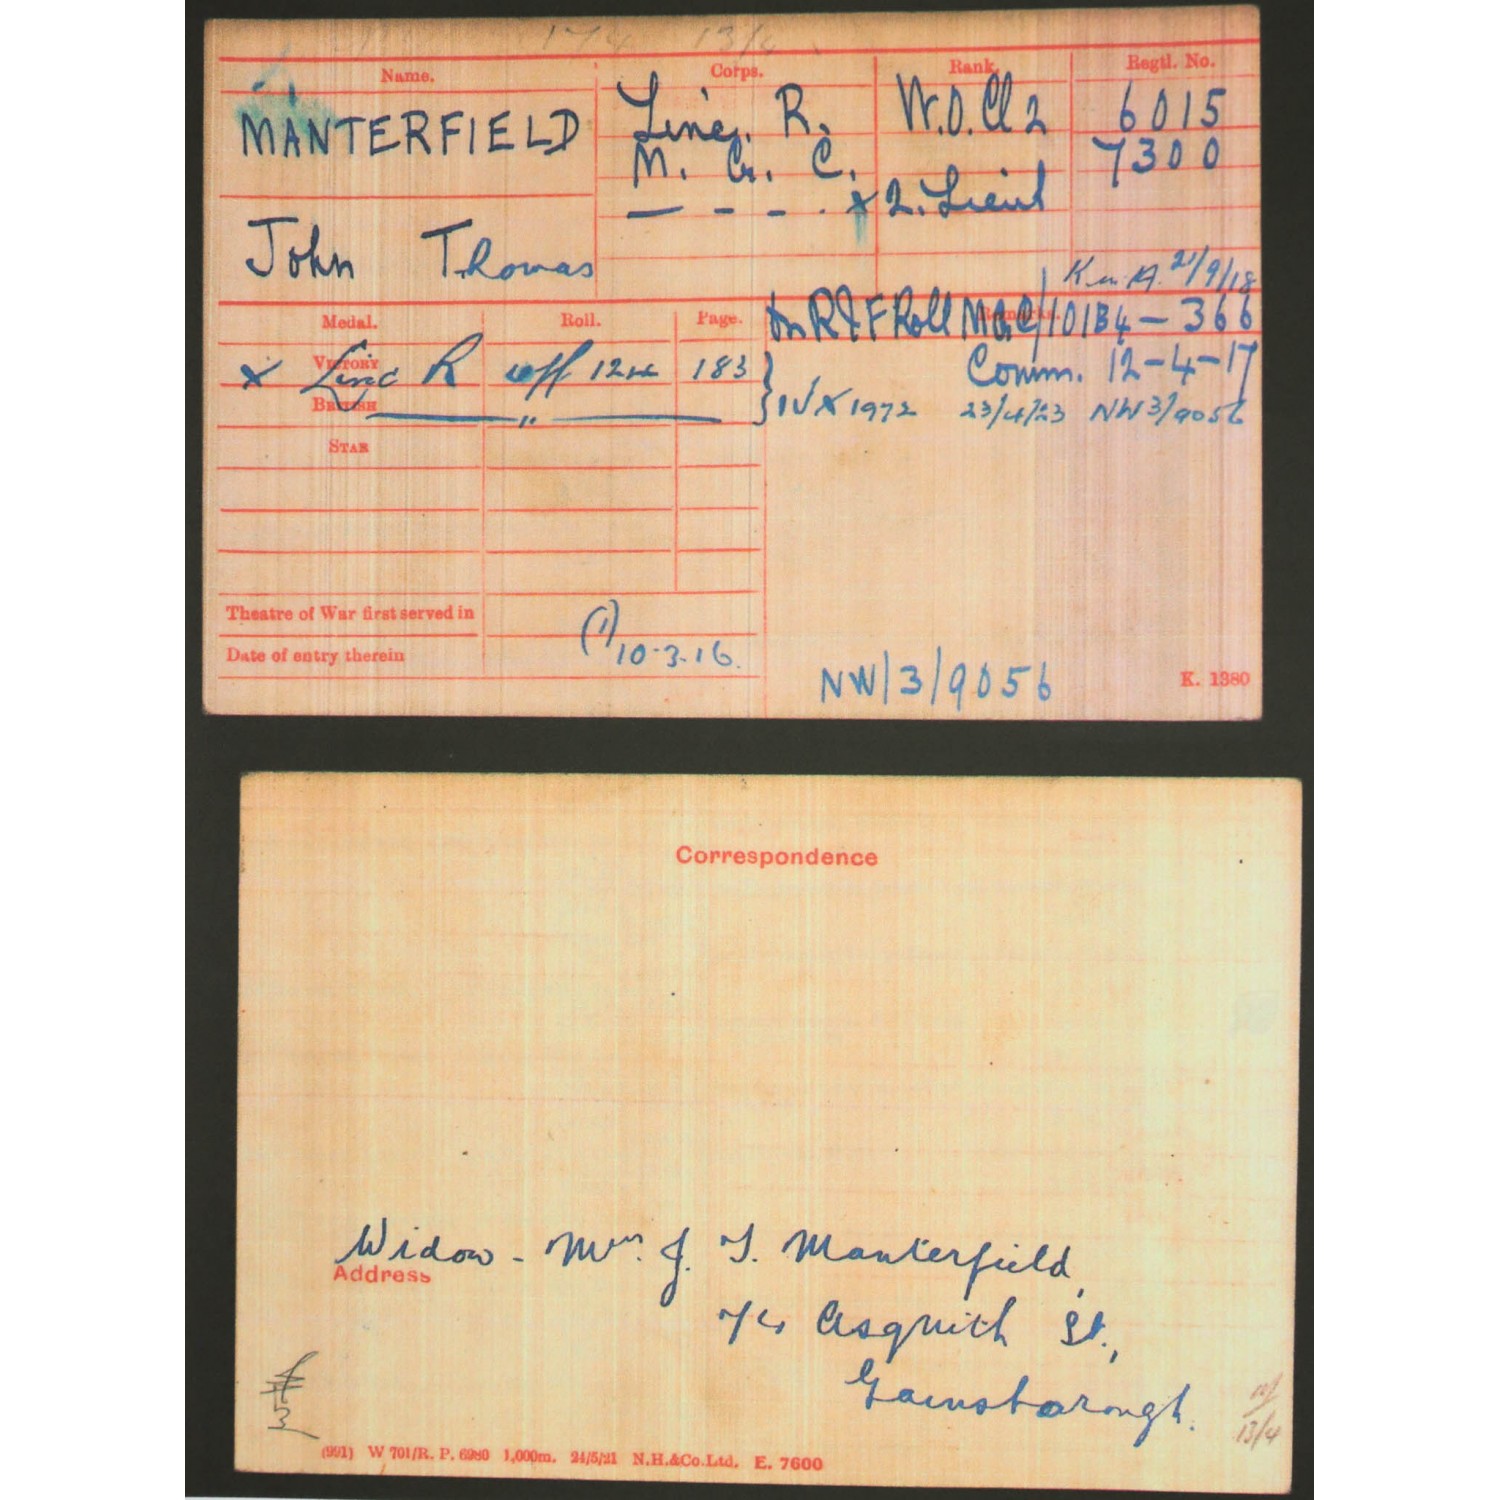 174 13/4
Name. Corps. Rank. Regtl. No.
MANTERFIELD Linc. R. W.O.Cl 2 6015
M. G. C. 7300
— - - . x 2. Lieut
John Thomas
K in A. 21/9/18
Medal. Roll. Page. Remarks.
On R & F Roll MGC/101B4 - 366
VICTORY x Linc R off 124 183 Comm. 12-4-17
BRITISH — " — } IV x 1972 23/4/23 NW3/9056
STAR
Theatre of War first served in (1)
Date of entry therein 10-3-16.
NW/3/9056 K. 1380
Correspondence
Widow - Mrs. J. T. Manterfield,
Address
Asquith St.,
Gainsborough.
13/4
(991) W 701/R. P. 6980 1,000m. 24/5/21 N.H.&Co.Ltd. E. 7600